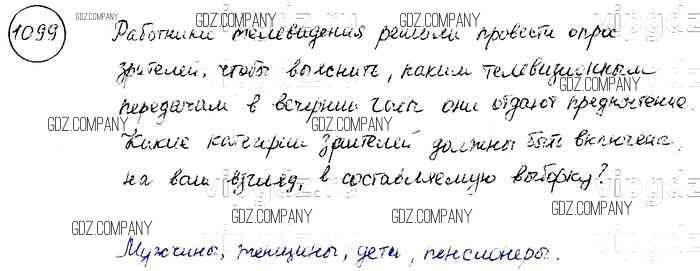 1099 Работники телевидения решили провести опрос
зрителей, чтобы выяснить, каким телевизионным
передачам в вечерние часы они отдают предпочтение.
Какие категории зрителей должны быть включены,
на ваш взгляд, в составляемую выборку?
Мужчины, женщины, дети, пенсионеры.
GDZ.COMPANY
GDZ.COMPANY
GDZ.COMPANY
GDZ.COMPANY
GDZ.COMPANY
GDZ.COMPANY
GDZ.COMPANY
GDZ.COMPANY
GDZ.COMPANY
GDZ.COMPANY
GDZ.COMPANY
GDZ.COMPANY